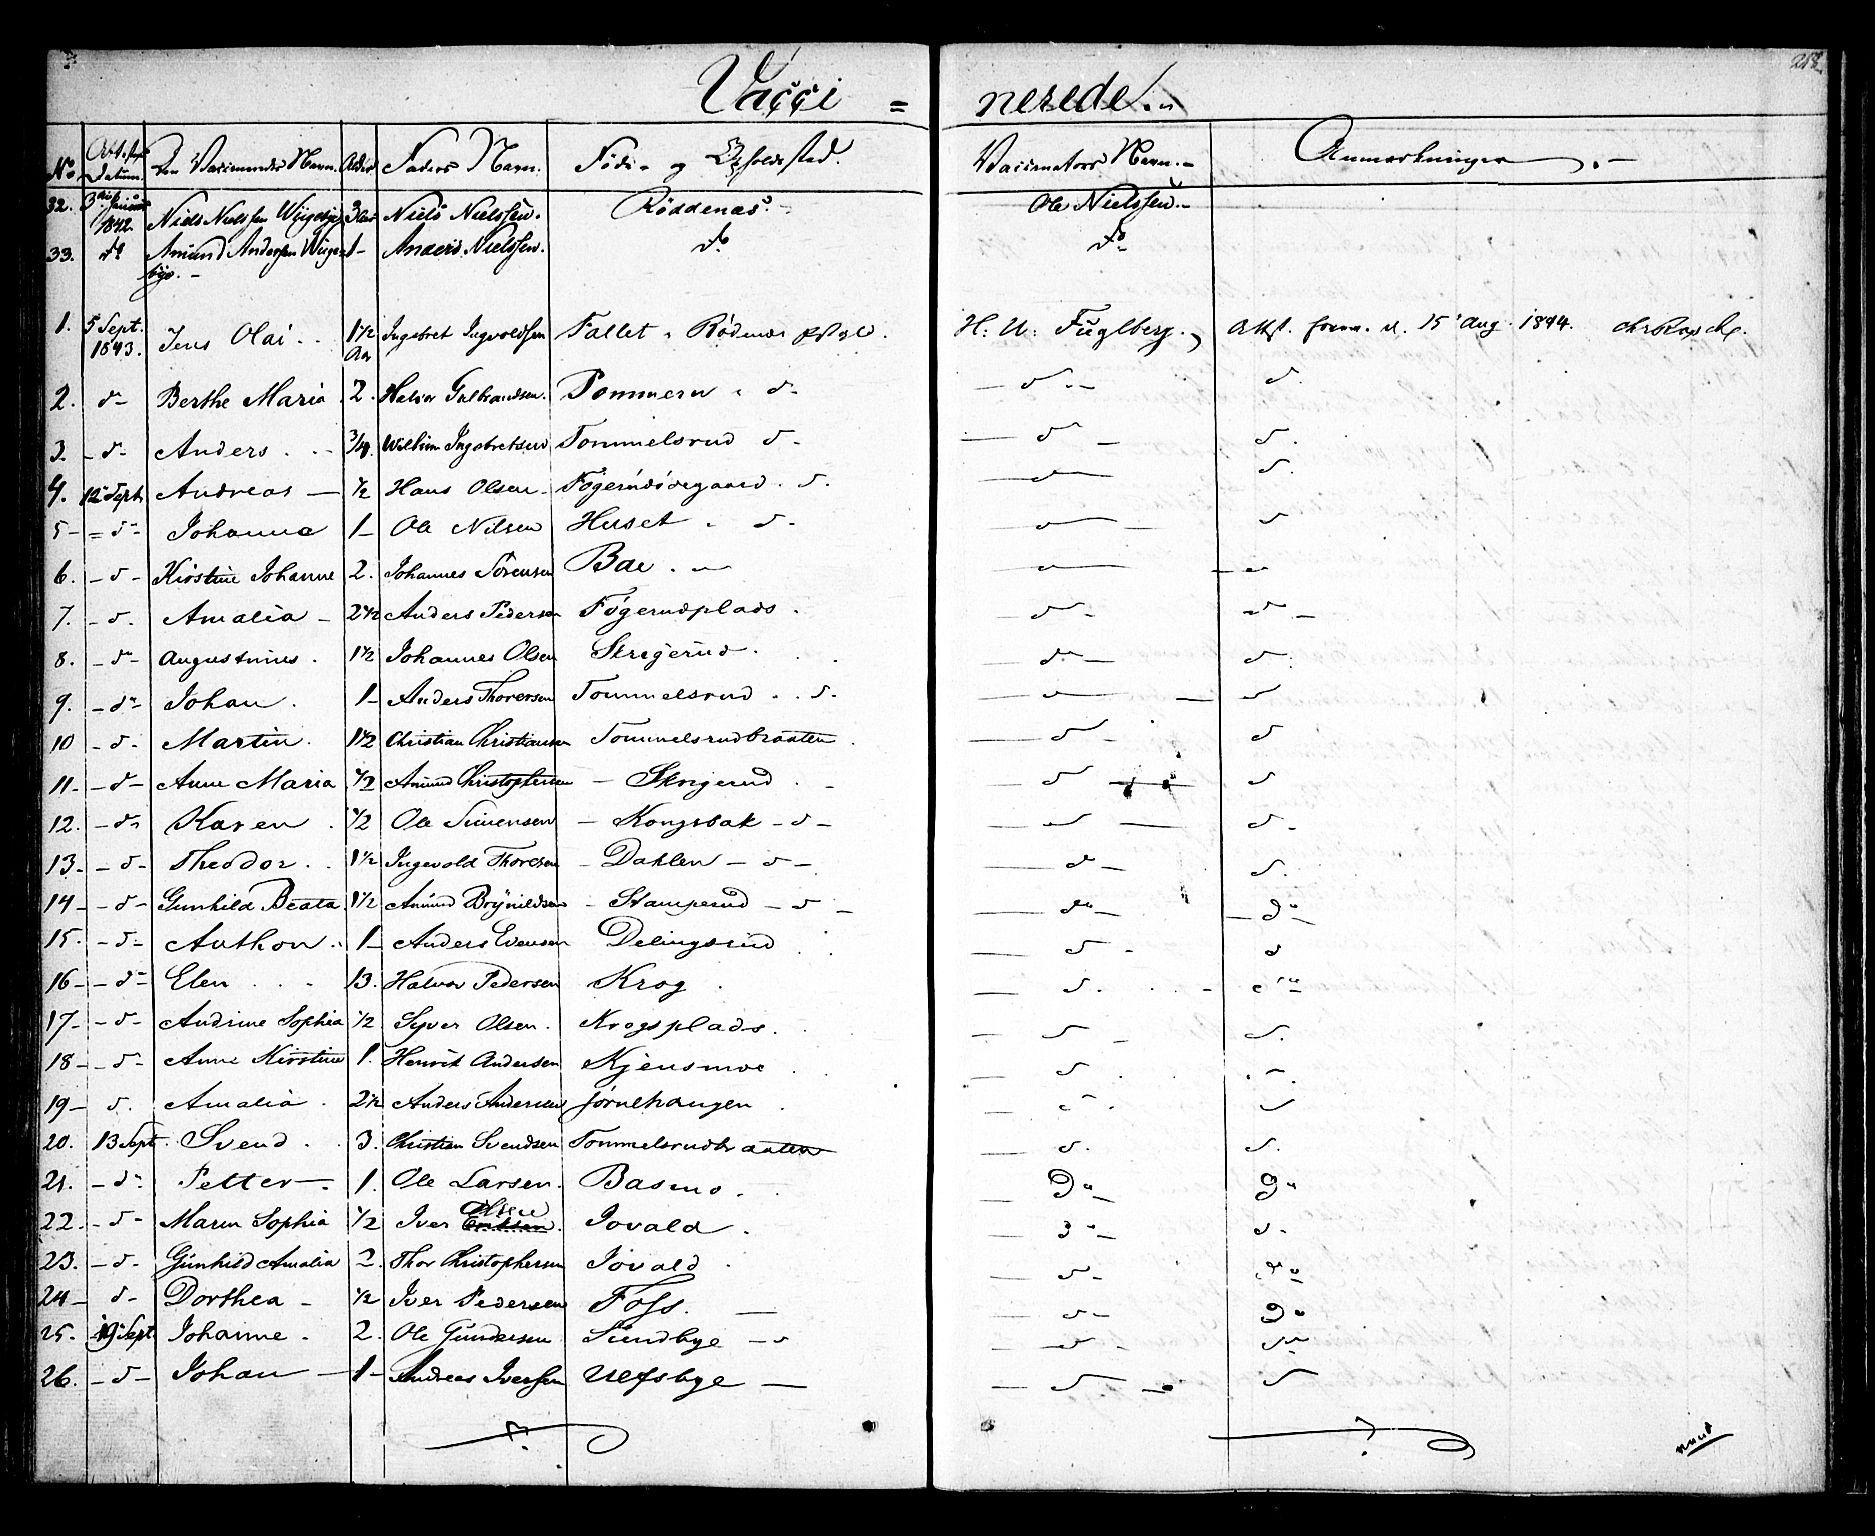 218
Vacci = nerede
No. Attest. Datum. Den Vaccineredes Navn. Alder Faders Navn. Føde- og Opholdssted. Vaccinateurs Navn. Anmærkninger.
32. 1842. Niels Nielssen 3 Niels Nielssen. Röddenæs. Ole Nielssen.
33. do Amund Anderssen 1- Anders Nielssen. do do
bye.
1. 5 Sept. 1843. Jens Olai 1 1/2 Aar Ingebret Ingvoldsen Fallet Rödenæs H. U. Fuglberg. Attst. frem. d. 15 Aug. 1844.
2. d- Berthe Maria 2. Halvor Gulbrandsen. Pommern d- d- d.
3. d- Anders 3/4. Willum Ingebretsen Tommelsrud d- d- d.
4. 12 Sept. Andreas 1/2 Hans Olsen Fögerudödegaard d. d d.
5- d- Johanne 1- Ole Nilsen Huset d- d d
6. -d- Kirstine Johanne 2. Johannes Sörensen Bae.
7. -d- Amalia 2 1/2 Anders Pedersen Fögerudplads. d- d-
8. -d- Augustinus. 1 1/2 Johannes Olsen Skrigerud. d- d.
9. -d- Johan. 1- Anders Thoresen Tommelsrud d. d
10 -d- Martin. 1 1/2 Christian Christiansen Tommelsrudbraaten. d- d
11- -d- Anne Maria 1/2 Amund Christophersen - Skrigerud d d
12. -d- Karen 1/2 Ole Simensen - Kongsbak -d- d d-
13. -d- Theodor. 1 1/2 Ingevald Thoresen - Dahlen -d- d- d.
14- -d- Gunhild Beata 1 1/2 Amund Brynildsen - Stamperud -d- do- do
15. -d- Anthon. 1- Anders Evensen Delingsrud d- d
16- -d- Elen 13. Halvor Pedersen Krog. d.
17- -d- Andrine Sophia 1/2 Syver Olsen. Krogsplads. d- d.
18- -d- Anne Kirstine 1. Henrik Andersen Kjensmoe d.
19- d. Amalia 2 1/2 Anders Andersen Jörnehaugen
20. 13 Sept. Svend 3. Christian Svendsen Tommelsrudbraaten d. d.
21. -d- Petter. 1. Ole Larsen. Basmo. Do- Do
22. -d- Maren Sophia 1/2 Iver Olsen Jovald. d.
23. -d- Gunhild Amalia 2. Thor Christophersen Jovald. d- do
24- d- Dorthea - 1/2 Iver Pedersen Foss. d- do
25. 19 Sept. Johanne. 2. Ole Gundersen Sundbye -d d- d-
26. -d- Johan 1- Andreas Iversen Ulfsbye d d